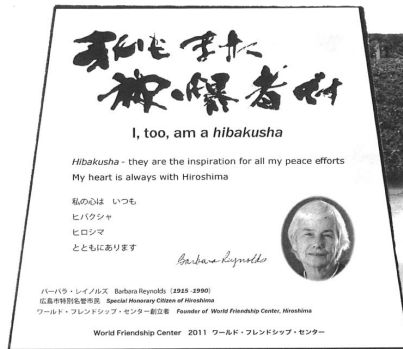 私もまた
被爆者です
I, too, am a hibakusha
Hibakusha - they are the inspiration for all my peace efforts
My heart is always with Hiroshima
私の心は いつも
ヒバクシャ
ヒロシマ
とともにあります
Barbara Reynolds
バーバラ・レイノルズ Barbara Reynolds (1915 -1990)
広島市特別名誉市民 Special Honorary Citizen of Hiroshima
ワールド・フレンドシップ・センター創立者 Founder of World Friendship Center, Hiroshima
World Friendship Center 2011 ワールド・フレンドシップ・センター